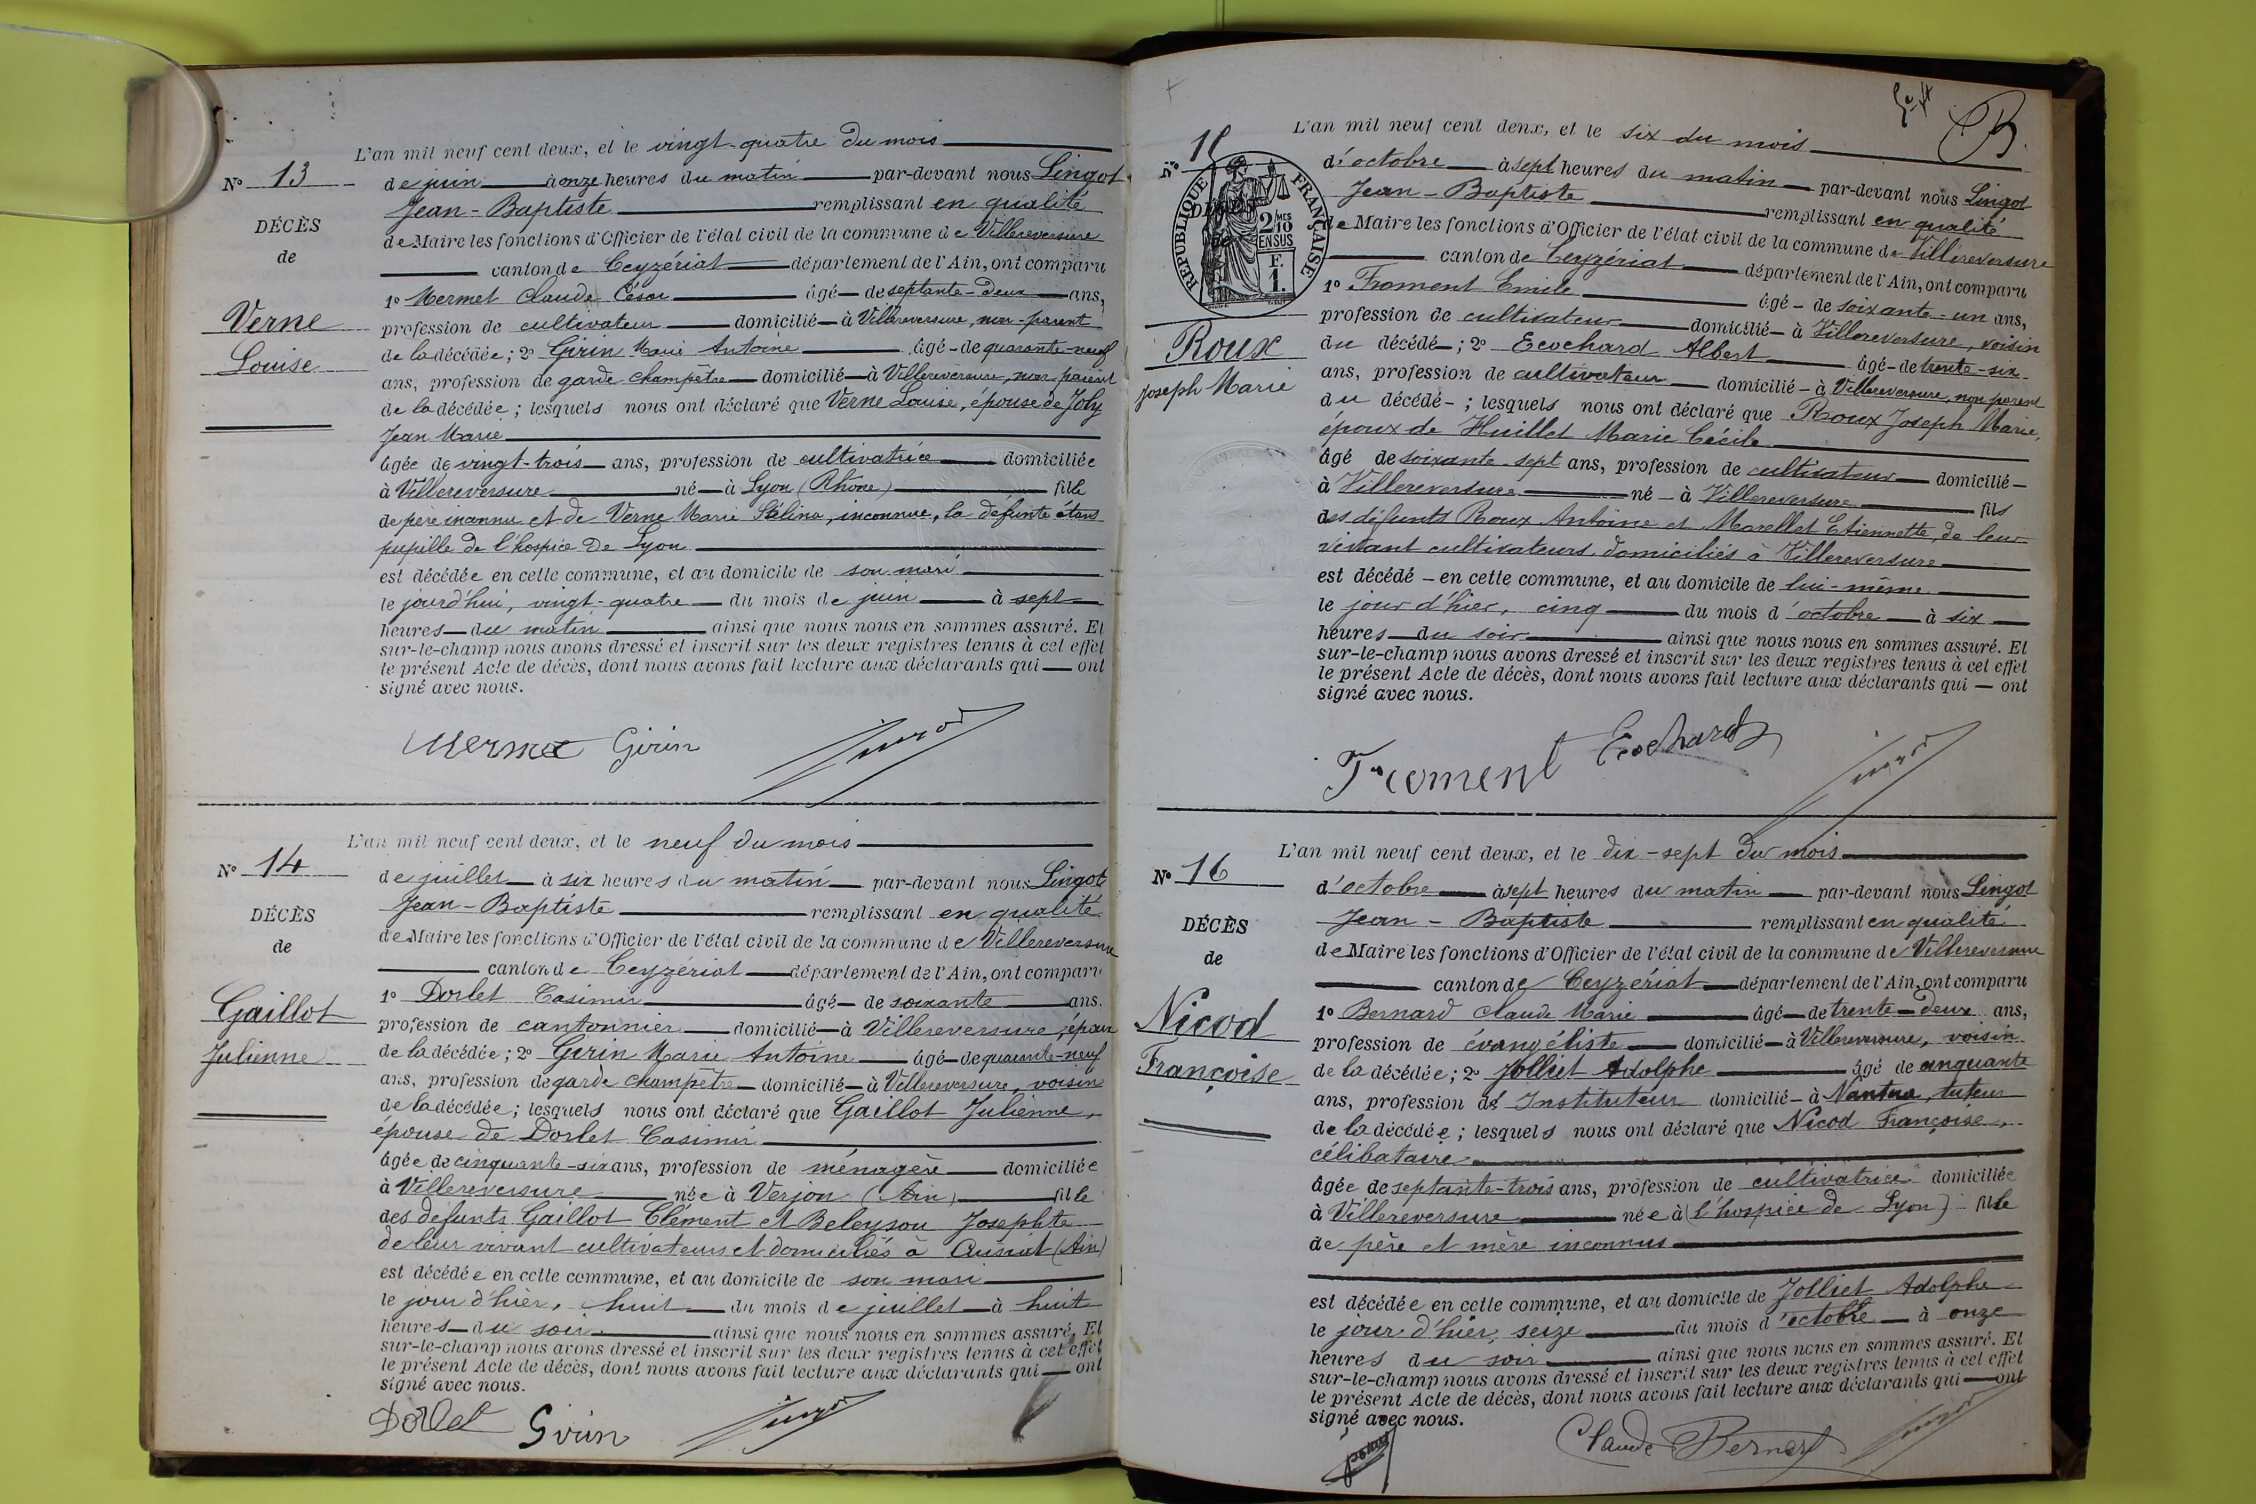 L'an mil neuf cent deux, et le vingt-quatre du mois
N° 13
de juin à onze heures du matin par-devant nous Lingot
Jean-Baptiste remplissant en qualité
DÉCÈS
de Maire les fonctions d'Officier de l'état civil de la commune de Villereversure
de
canton de Ceyzériat département de l'Ain, ont comparu
1° Mermet Claude César âgé de septante-deux ans,
Verne
profession de cultivateur domicilié à Villereversure, non-parent
de la décédée; 2° Girin Marie Antoine âgé de quarante-neuf
Louise
ans, profession de garde champêtre domicilié à Villereversure, non parent
de la décédée; lesquels nous ont déclaré que Verne Louise, épouse de Joly
Jean Marie
âgée de vingt-trois ans, profession de cultivatrice domiciliée
à Villereversure né à Lyon (Rhône) fille
de père inconnu et de Verne Marie Stéline, inconnue, la défunte étant
pupille de l'hospice de Lyon
est décédée en cette commune, et au domicile de son mari
le jourd'hui, vingt-quatre du mois de juin à sept
heures du matin ainsi que nous nous en sommes assuré. Et
sur-le-champ nous avons dressé et inscrit sur les deux registres tenus à cet effet
le présent Acte de décès, dont nous avons fait lecture aux déclarants qui ont
signé avec nous.
Mermet Girin Lingot
L'an mil neuf cent deux, et le neuf du mois
N° 14
de juillet à six heures du matin par-devant nous Lingot
Jean-Baptiste remplissant en qualité
DÉCÈS
de Maire les fonctions d'Officier de l'état civil de la commune de Villereversure
de
canton de Ceyzériat département de l'Ain, ont comparu
1° Dorlet Casimir âgé de soixante ans.
Gaillot
profession de cantonnier domicilié à Villereversure, époux
de la décédée; 2° Girin Marie Antoine âgé de quarante-neuf
Julienne
ans, profession de garde champêtre domicilié à Villereversure, voisin
de la décédée; lesquels nous ont déclaré que Gaillot Julienne,
épouse de Dorlet Casimir
âgée de cinquante-six ans, profession de ménagère domiciliée
à Villereversure née à Verjon (Ain) fille
des défunts Gaillot Clément et Beleysou Josephte
de leur vivant cultivateurs et domiciliés à Cuisiat (Ain)
est décédée en cette commune, et au domicile de son mari
le jour d'hier, huit du mois de juillet à huit
heures du soir ainsi que nous nous en sommes assuré. Et
sur-le-champ nous avons dressé et inscrit sur les deux registres tenus à cet effet
le présent Acte de décès, dont nous avons fait lecture aux déclarants qui ont
signé avec nous.
Dorlet Girin Lingot
L'an mil neuf cent deux, et le six du mois
N° 15
d'octobre à sept heures du matin par-devant nous Lingot
Jean-Baptiste remplissant en qualité
DÉCÈS
de
RÉPUBLIQUE FRANÇAISE
2/10 EN SUS
F. 1.
de Maire les fonctions d'Officier de l'état civil de la commune de Villereversure
canton de Ceyzériat département de l'Ain, ont comparu
1° Froment Emile âgé de soixante-un ans,
profession de cultivateur domicilié à Villereversure, voisin
Roux
du décédé; 2° Ecochard Albert âgé de trente-six
Joseph Marie
ans, profession de cultivateur domicilié à Villereversure, non parent
du décédé; lesquels nous ont déclaré que Roux Joseph Marie,
époux de Huillet Marie Cécile
âgé de soixante-sept ans, profession de cultivateur domicilié
à Villereversure né à Villereversure fils
des défunts Roux Antoine et Morellet Etiennette, de leur
vivant cultivateurs domiciliés à Villereversure
est décédé en cette commune, et au domicile de lui-même
le jour d'hier, cinq du mois d'octobre à six
heures du soir ainsi que nous nous en sommes assuré. Et
sur-le-champ nous avons dressé et inscrit sur les deux registres tenus à cet effet
le présent Acte de décès, dont nous avons fait lecture aux déclarants qui ont
signé avec nous.
Froment Ecochard Lingot
L'an mil neuf cent deux, et le dix-sept du mois
N° 16
d'octobre à sept heures du matin par-devant nous Lingot
Jean-Baptiste remplissant en qualité
DÉCÈS
de Maire les fonctions d'Officier de l'état civil de la commune de Villereversure
de
canton de Ceyzériat département de l'Ain, ont comparu
1° Bernard Claude Marie âgé de trente-deux ans,
Nicod
profession de évangéliste domicilié à Villereversure, voisin
de la décédée; 2° Jolliet Adolphe âgé de cinquante
Françoise
ans, profession de Instituteur domicilié à Nantua, tuteur
de la décédée; lesquels nous ont déclaré que Nicod Françoise,
célibataire
âgée de septante-trois ans, profession de cultivatrice domiciliée
à Villereversure née à (l'hospice de Lyon) fille
de père et mère inconnus
est décédée en cette commune, et au domicile de Jolliet Adolphe
le jour d'hier, seize du mois d'octobre à onze
heures du soir ainsi que nous nous en sommes assuré. Et
sur-le-champ nous avons dressé et inscrit sur les deux registres tenus à cet effet
le présent Acte de décès, dont nous avons fait lecture aux déclarants qui ont
signé avec nous.
Claude Bernard Lingot